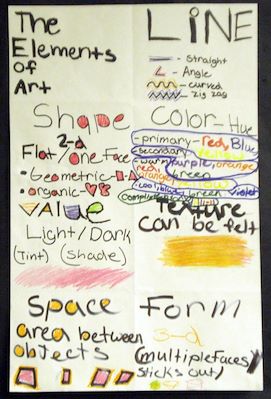 The
Elements
of
Art
LiNE
- Straight
- Angle
- curved
- zig zag
Shape
2-d
Flat/one Face
• Geometric -
• organic -
Color - Hue
- primary - red, Blue
yellow
- secondary
purple, orange
Green
- warm
red,
orange
yellow
- cool: blue, Green violet
VALUE
Light/Dark
(Tint) (Shade)
Texture
can be felt
Space
area between
objects
Form
3-d
(multiple faces/
sticks out)